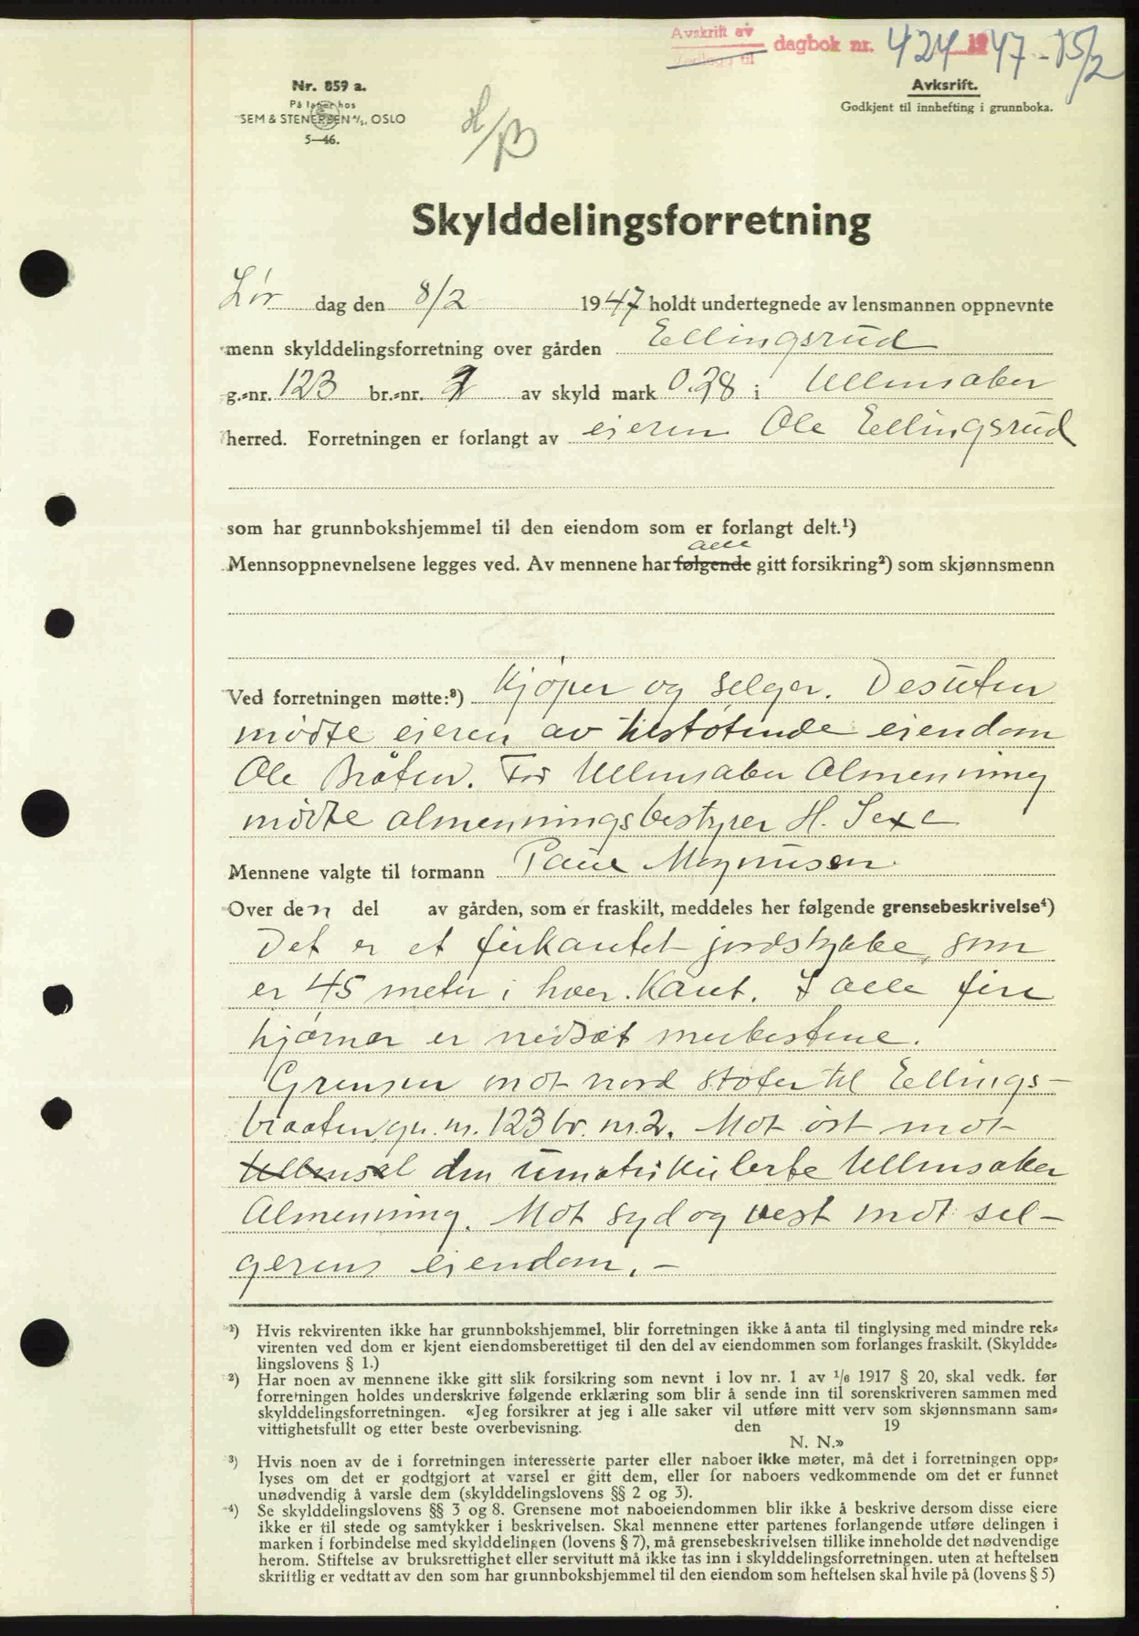 Avskrift av dagbok nr. 424 1947 - 15/2
Nr. 859 a.
På lager hos
SEM & STENERSEN A/S, OSLO
5—46.
Avksrift.
Godkjent til innhefting i grunnboka.
H/B
Skylddelingsforretning
Lør dag den 8/2 1947 holdt undertegnede av lensmannen oppnevnte
menn skylddelingsforretning over gården Ellingsrud
g.-nr. 123 br.-nr. 2 av skyld mark 0.28 i Ullensaker
herred. Forretningen er forlangt av eieren Ole Ellingsrud
som har grunnbokshjemmel til den eiendom som er forlangt delt.¹)
alle
Mennsoppnevnelsene legges ved. Av mennene har følgende gitt forsikring²) som skjønnsmenn
Ved forretningen møtte:³) Kjøper og selger. Desuten
møtte eieren av tilstøtende eiendom
Ole Bråten. For Ullensaker Almenning
møtte almenningsbestyrer H. Sexe
Mennene valgte til formann Paul Magnusen.
Over den del av gården, som er fraskilt, meddeles her følgende grensebeskrivelse⁴)
Det er et firkantet jordstykke, som
er 45 meter i hver Kant. I alle fire
hjørner er nedsat merkestene.
Grensen mot nord støter til Ellings-
braaten, gn. nr. 123 br. nr. 2. Mot øst mot
Ullensak den umatrikulerte Ullensaker
Almenning. Mot syd og vest mot sel-
gerens eiendom. -
¹) Hvis rekvirenten ikke har grunnbokshjemmel, blir forretningen ikke å anta til tinglysing med mindre rek-
virenten ved dom er kjent eiendomsberettiget til den del av eiendommen som forlanges fraskilt. (Skyldde-
lingslovens § 1.)
²) Har noen av mennene ikke gitt slik forsikring som nevnt i lov nr. 1 av 1/6 1917 § 20, skal vedk. før
forretningen holdes underskrive følgende erklæring som blir å sende inn til sorenskriveren sammen med
skylddelingsforretningen. «Jeg forsikrer at jeg i alle saker vil utføre mitt verv som skjønnsmann sam-
vittighetsfullt og etter beste overbevisning. den 19
N. N.»
³) Hvis noen av de i forretningen interesserte parter eller naboer ikke møter, må det i forretningen opp-
lyses om det er godtgjort at varsel er gitt dem, eller for naboers vedkommende om det er funnet
unødvendig å varsle dem (skylddelingslovens §§ 2 og 3).
⁴) Se skylddelingslovens §§ 3 og 8. Grensene mot naboeiendommen blir ikke å beskrive dersom disse eiere
ikke er til stede og samtykker i beskrivelsen. Skal mennene etter partenes forlangende utføre delingen i
marken i forbindelse med skylddelingen (lovens § 7), må grensebeskrivelsen tillike inneholde det nødvendige
herom. Stiftelse av bruksrettighet eller servitutt må ikke tas inn i skylddelingsforretningen, uten at heftelsen
skriftlig er vedtatt av den som har grunnbokshjemmel til den eiendom som heftelsen skal hvile på (lovens § 5)